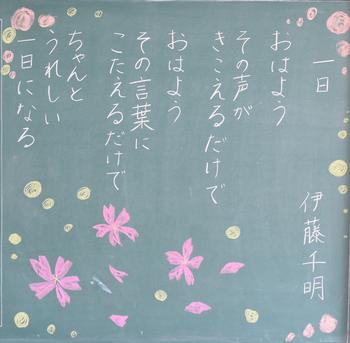 一日
伊藤千明
おはよう
その声が
きこえるだけで
おはよう
その言葉に
こたえるだけで
ちゃんと
うれしい
一日になる